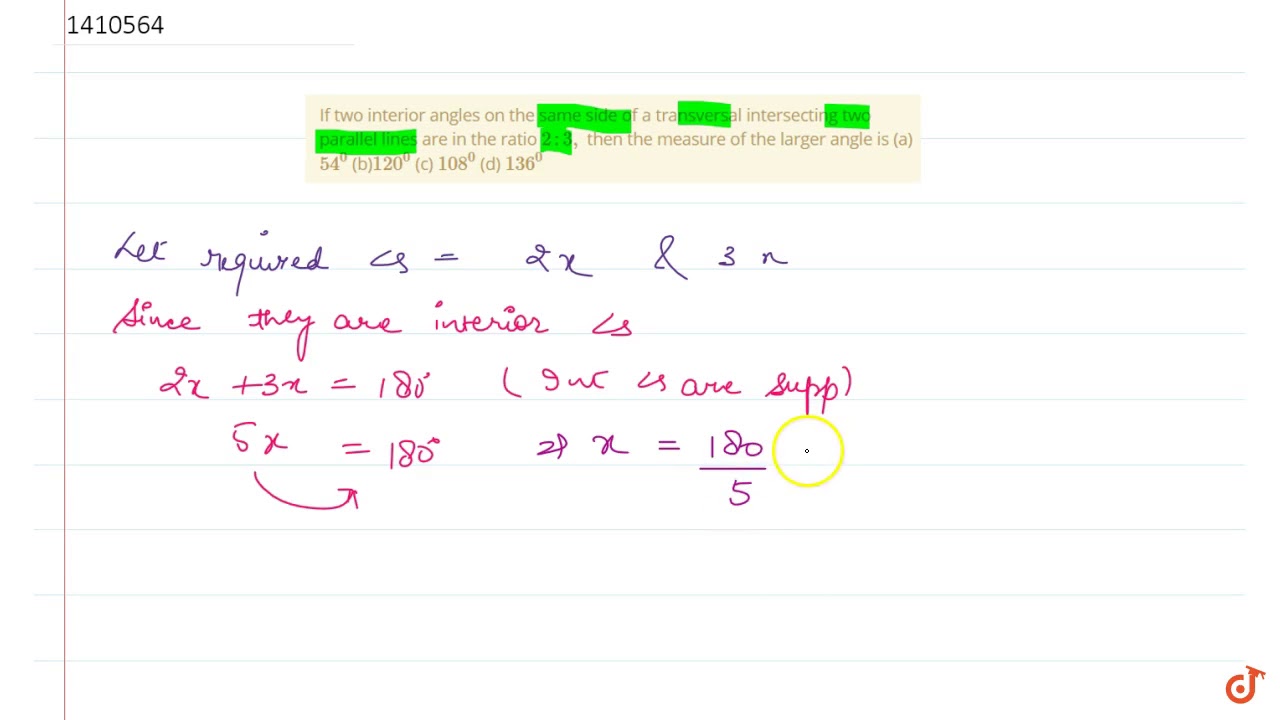 1410564
If two interior angles on the same side of a transversal intersecting two
parallel lines are in the ratio 2 : 3, then the measure of the larger angle is (a)
54⁰ (b)120⁰ (c) 108⁰ (d) 136⁰
Let required ∠s = 2x & 3x
Since they are interior ∠s
2x + 3x = 180° ( Int ∠s are supp)
5x = 180° ⇒ x = 180/5